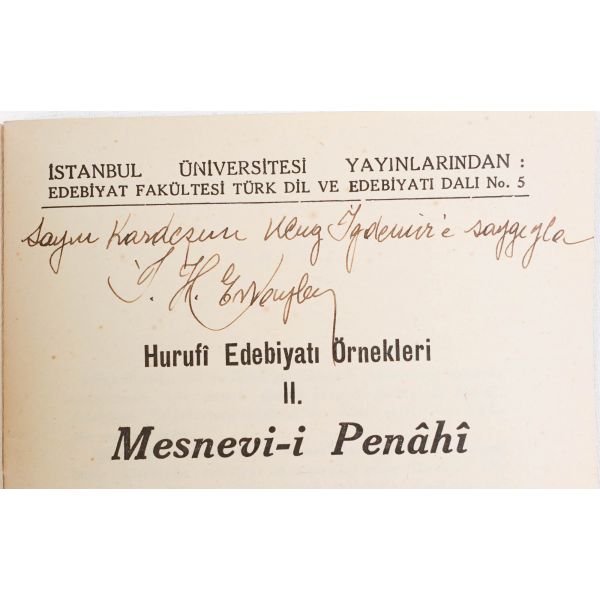 İSTANBUL ÜNİVERSİTESİ YAYINLARINDAN :
EDEBİYAT FAKÜLTESİ TÜRK DİL VE EDEBİYATI DALI No. 5
Sayın Kardeşim Uluğ İğdemir'e saygıyla
S. H.
Hurufî Edebiyatı Örnekleri
II.
Mesnevi-i Penâhî